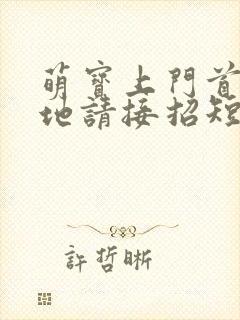 萌寶上門首
地請接招短
許哲晰